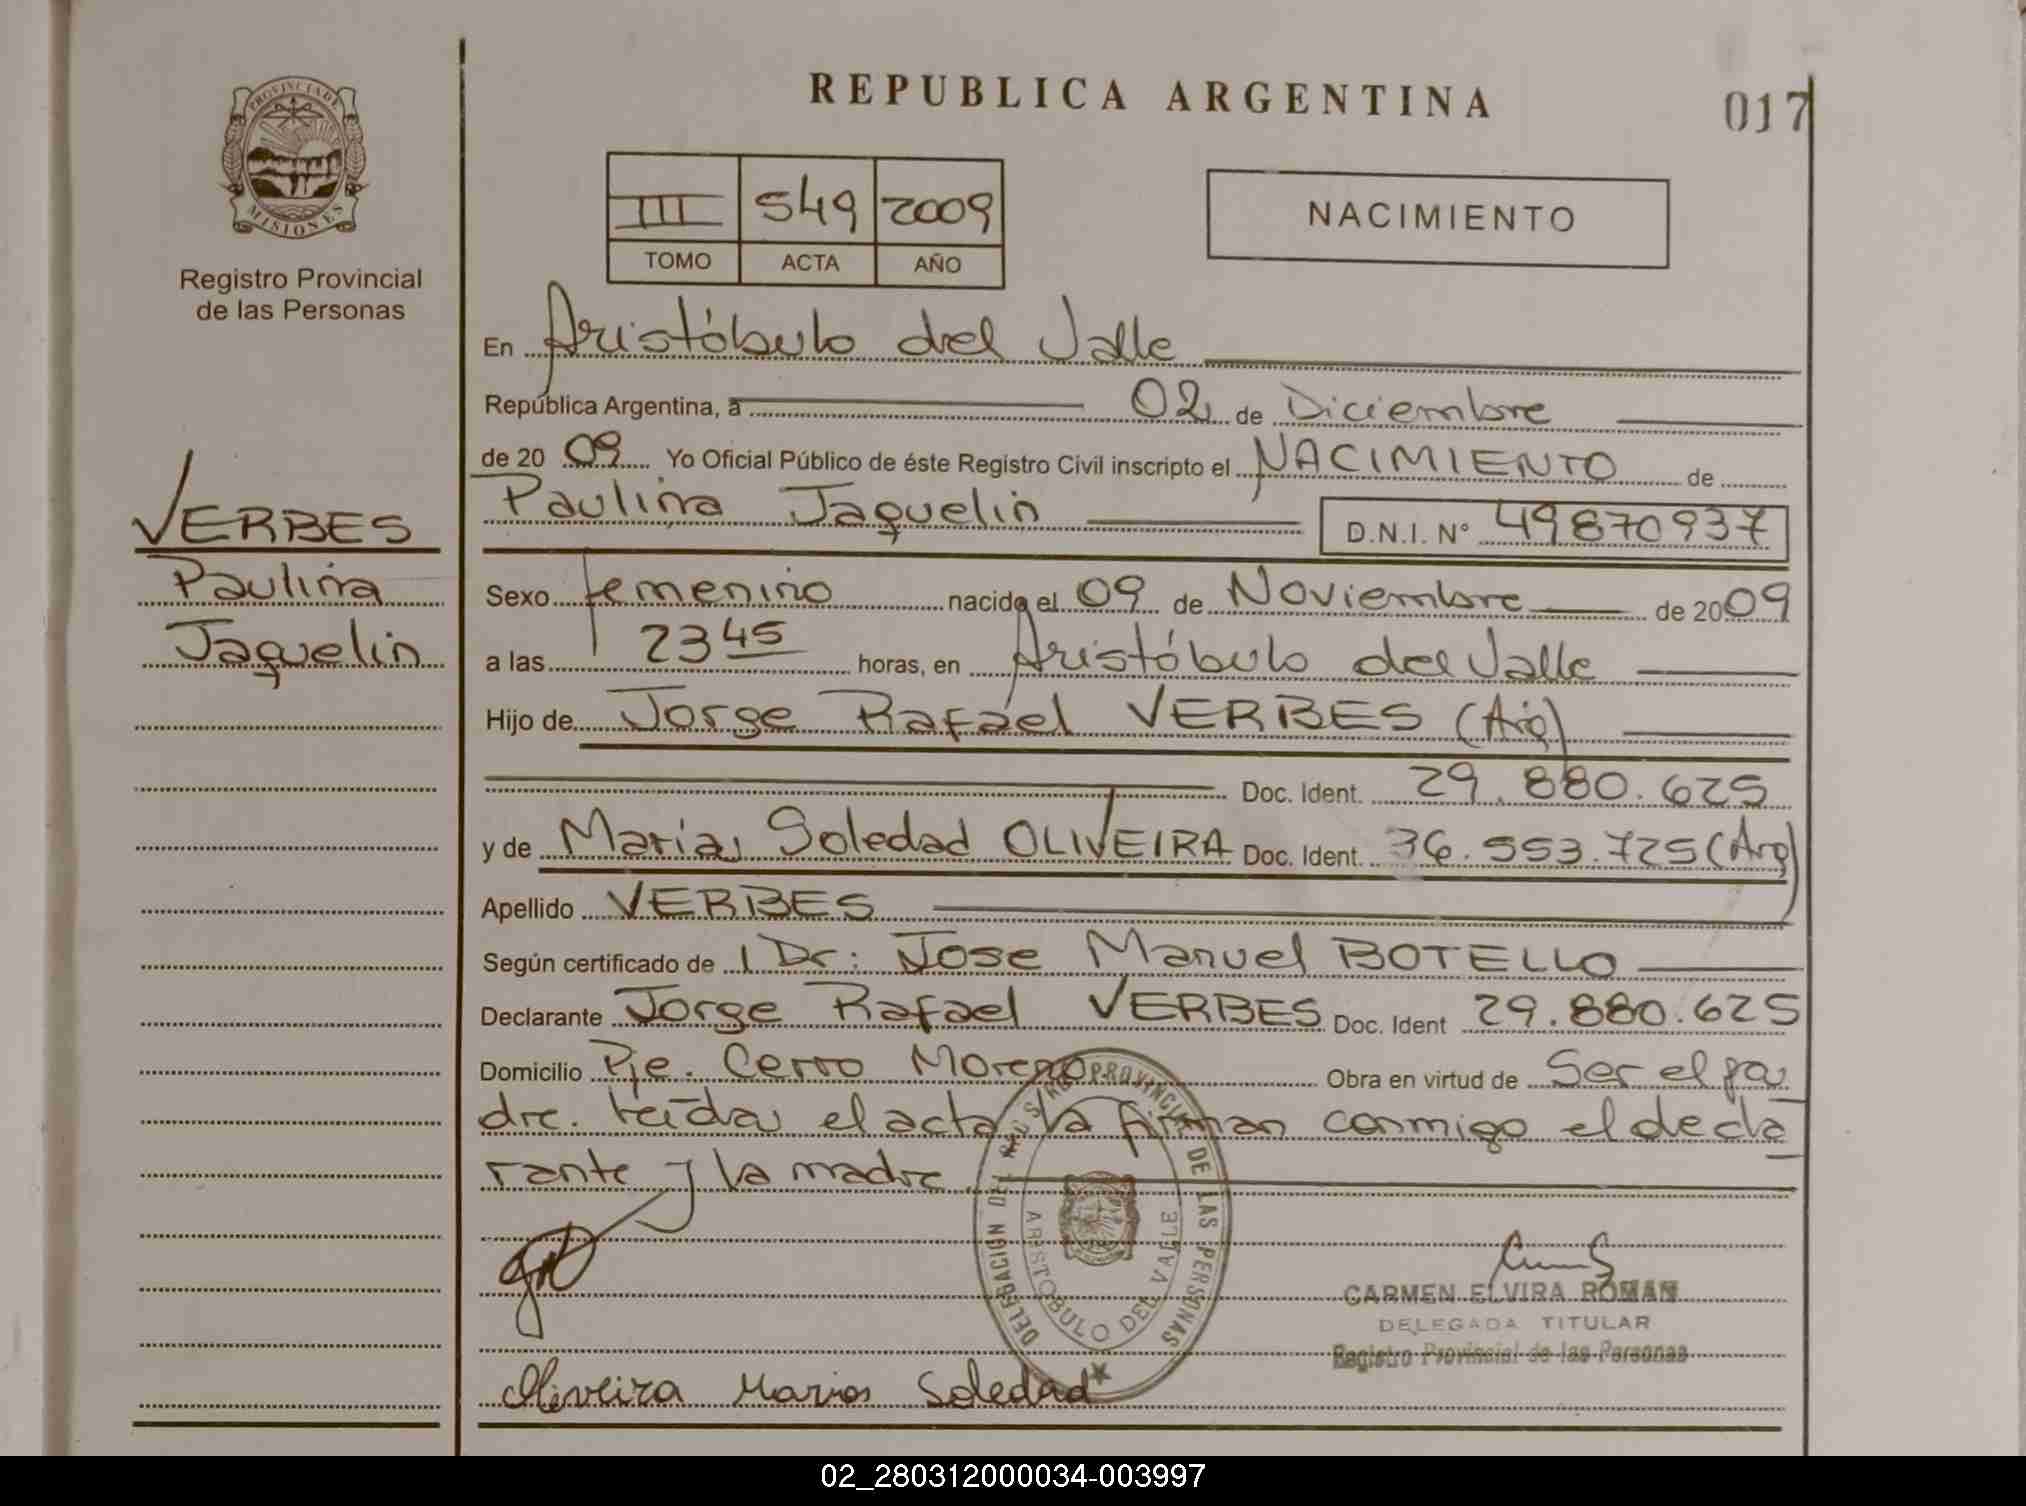 REPUBLICA ARGENTINA
017
PROVINCIA DE
MISIONES
Registro Provincial
de las Personas
III 549 2009
TOMO ACTA AÑO
NACIMIENTO
En Aristóbulo del Valle
República Argentina, a 02 de Diciembre
de 2009 Yo Oficial Público de éste Registro Civil inscripto el NACIMIENTO de
Paulina Jaquelin D.N.I. Nº 49870937
VERBES
Paulina
Jaquelin
Sexo femenino nacido el 09 de Noviembre de 2009
a las 23 45 horas, en Aristóbulo del Valle
Hijo de Jorge Rafael VERBES (Arg)
Doc. Ident. 29.880.625
y de Maria Soledad OLIVEIRA Doc. Ident. 36.553.725 (Arg)
Apellido VERBES
Según certificado de 1 Dr: Jose Manuel BOTELLO
Declarante Jorge Rafael VERBES Doc. Ident 29.880.625
Domicilio Pje. Cerro Moreno Obra en virtud de Ser el pa
dre. Leída el acta la firman conmigo el decla
rante y la madre
DELEGACION DEL REGISTRO PROVINCIAL DE LAS PERSONAS
ARISTOBULO DEL VALLE
CARMEN ELVIRA ROMAN
DELEGADA TITULAR
Registro Provincial de las Personas
Oliveira Maria Soledad
02_280312000034-003997